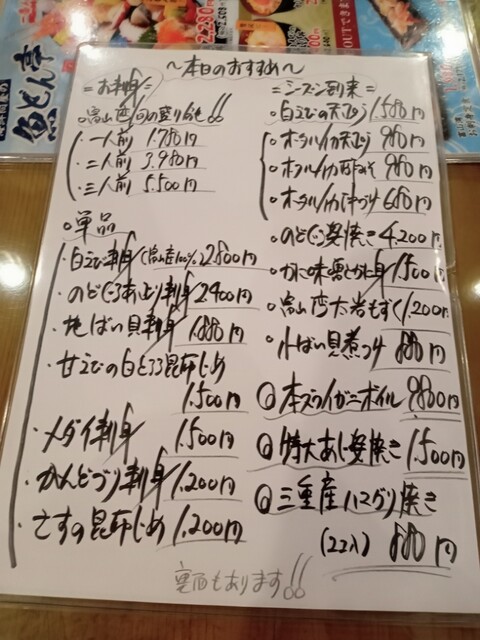 魚どん亭
2,280円
〜本日のおすすめ〜
=お刺身=
◦富山湾旬の盛り合せ!!
・一人前 1.780円
・二人前 3.980円
・三人前 5.500円
◦単品
・白えび刺身(富山産100%) 2.800円
・のどぐろあぶり刺身 2.400円
・地ばい貝刺身 1.880円
・甘えびの白とろろ昆布じめ
1.500円
・メダイ刺身 1.500円
・かんどづり刺身 1.200円
・さすの昆布じめ 1.200円
=シーズン到来=
◦白えびの天ぷら 1.580円
◦ホタルイカ天ぷら 980円
◦ホタルイカ酢みそ 980円
◦ホタルイカ沖づけ 680円
◦のどぐろ姿焼き 4,200円
◦かに味噌甲羅 1,500円
◦富山湾太岩もずく 1,200円
◦小ばい貝煮つけ 880円
◎本ズワイガニボイル 9800円
◎特大あじ姿焼き 1,500円
◎三重産ハマグリ焼き
(2コ入) 880円
裏面もあります!!